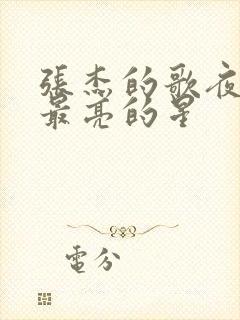 張杰的歌夜
最亮的星
電分